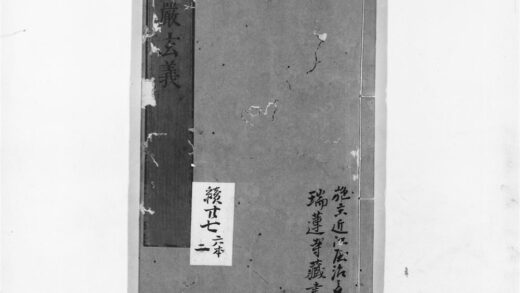 施京近江屋治
瑞蓮寺藏書
嚴玄義
續廿七
六本
二